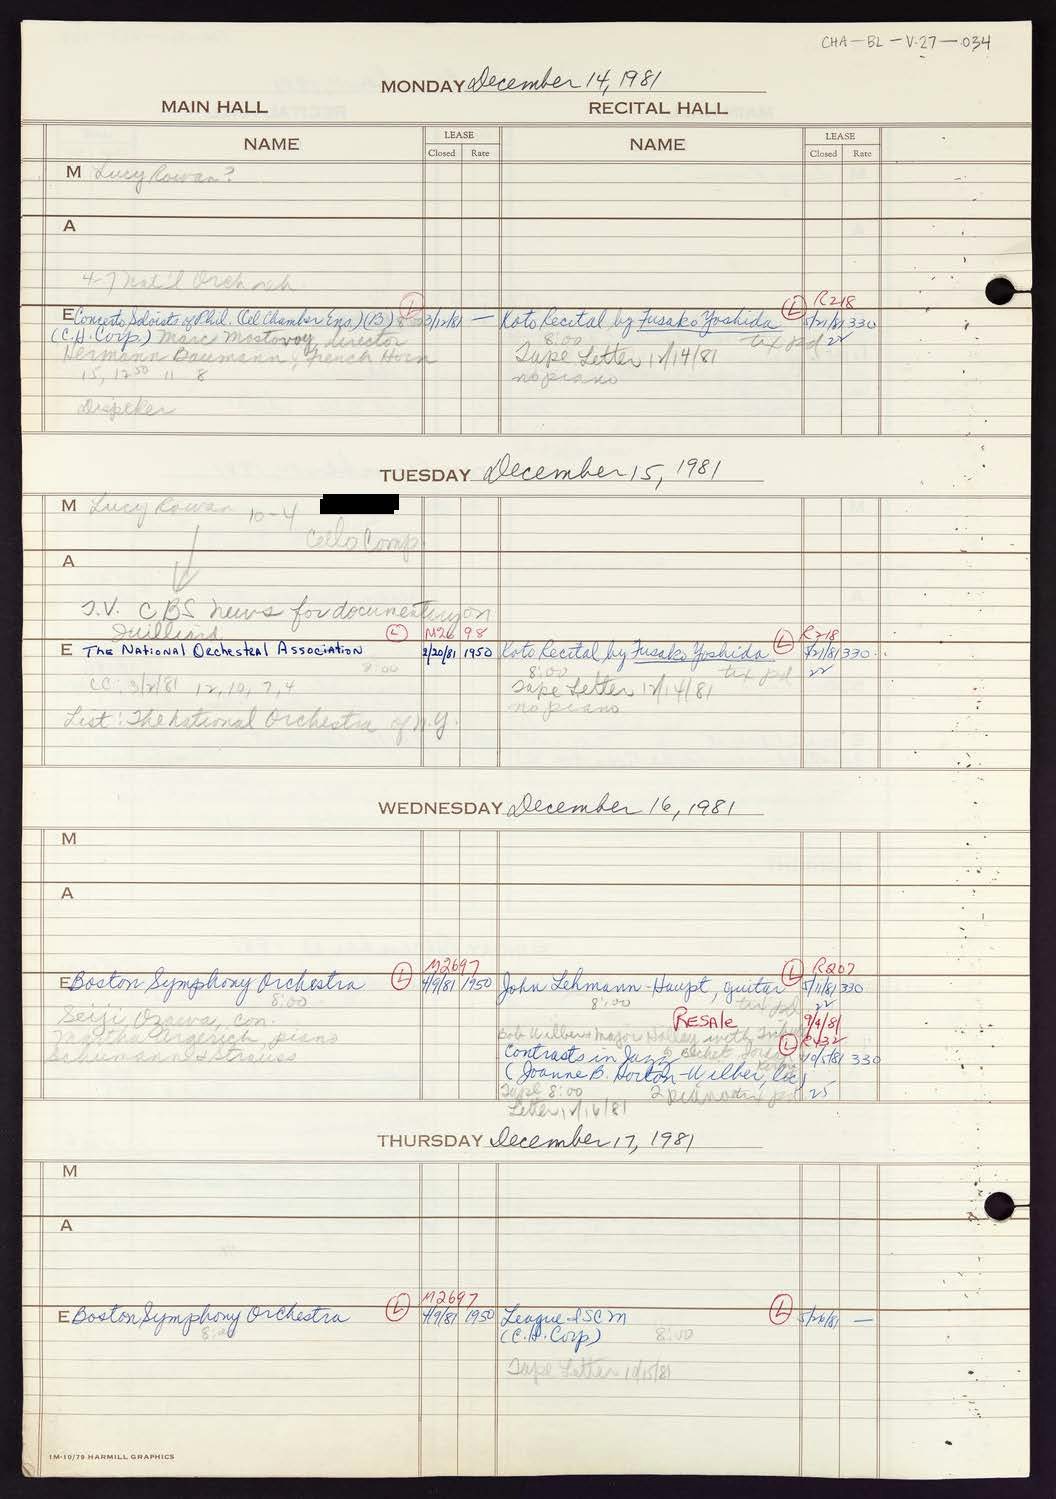 CHA-BL-V-27-034
MONDAY December 14, 1981
MAIN HALL RECITAL HALL
NAME LEASE NAME LEASE
Closed Rate Closed Rate
M Lucy Rowan?
A
4-7 Nat'l Orch reh
L L R218
E Concerto Soloists of Phil. (Cel Chamber Ens.) (B) 8:00 3/12/81 — Koto Recital by Fusako Yoshida 5/21/81 330
(C.H. Corp.) Marc Mostovoy, director 8:00 tix pd 22
Hermann Baumann, French Horn Tape Letter 12/14/81
15, 12 50 11 8 no piano
Dispeker
TUESDAY December 15, 1981
M Lucy Rowan 10-4
Cello Comp.
A
T.V. CBS news for documentary on
Juilliard L M2698 L R218
E The National Orchestral Association 2/20/81 1950 Koto Recital by Fusako Yoshida 5/21/81 330
8:00 8:00 tix pd 22
CC: 3/2/81 12, 10, 7, 4 Tape Letter 12/14/81
List: The National Orchestra of N.Y. no piano
WEDNESDAY December 16, 1981
M
A
L M2697 L R207
E Boston Symphony Orchestra 4/9/81 1950 John Lehmann-Haupt, guitar 5/11/81 330
8:00 8:00 tix pd 22
Seiji Ozawa, con. RESALE 9/4/81
Martha Argerich, piano Bob Wilber & Major Holley with L R432
Schumann & Strauss Contrasts in Jazz 10/5/81 330
(Joanne B. Horton-Wilber, lic)
Tape 8:00 2 pianos tix pd 25
Letter 12/16/81
THURSDAY December 17, 1981
M
A
L M2697 L
E Boston Symphony Orchestra 4/9/81 1950 League-ISCM 5/26/81 —
8:00 (C.H. Corp) 8:00
Tape Letter 12/15/81
1M-10/79 HARMILL GRAPHICS